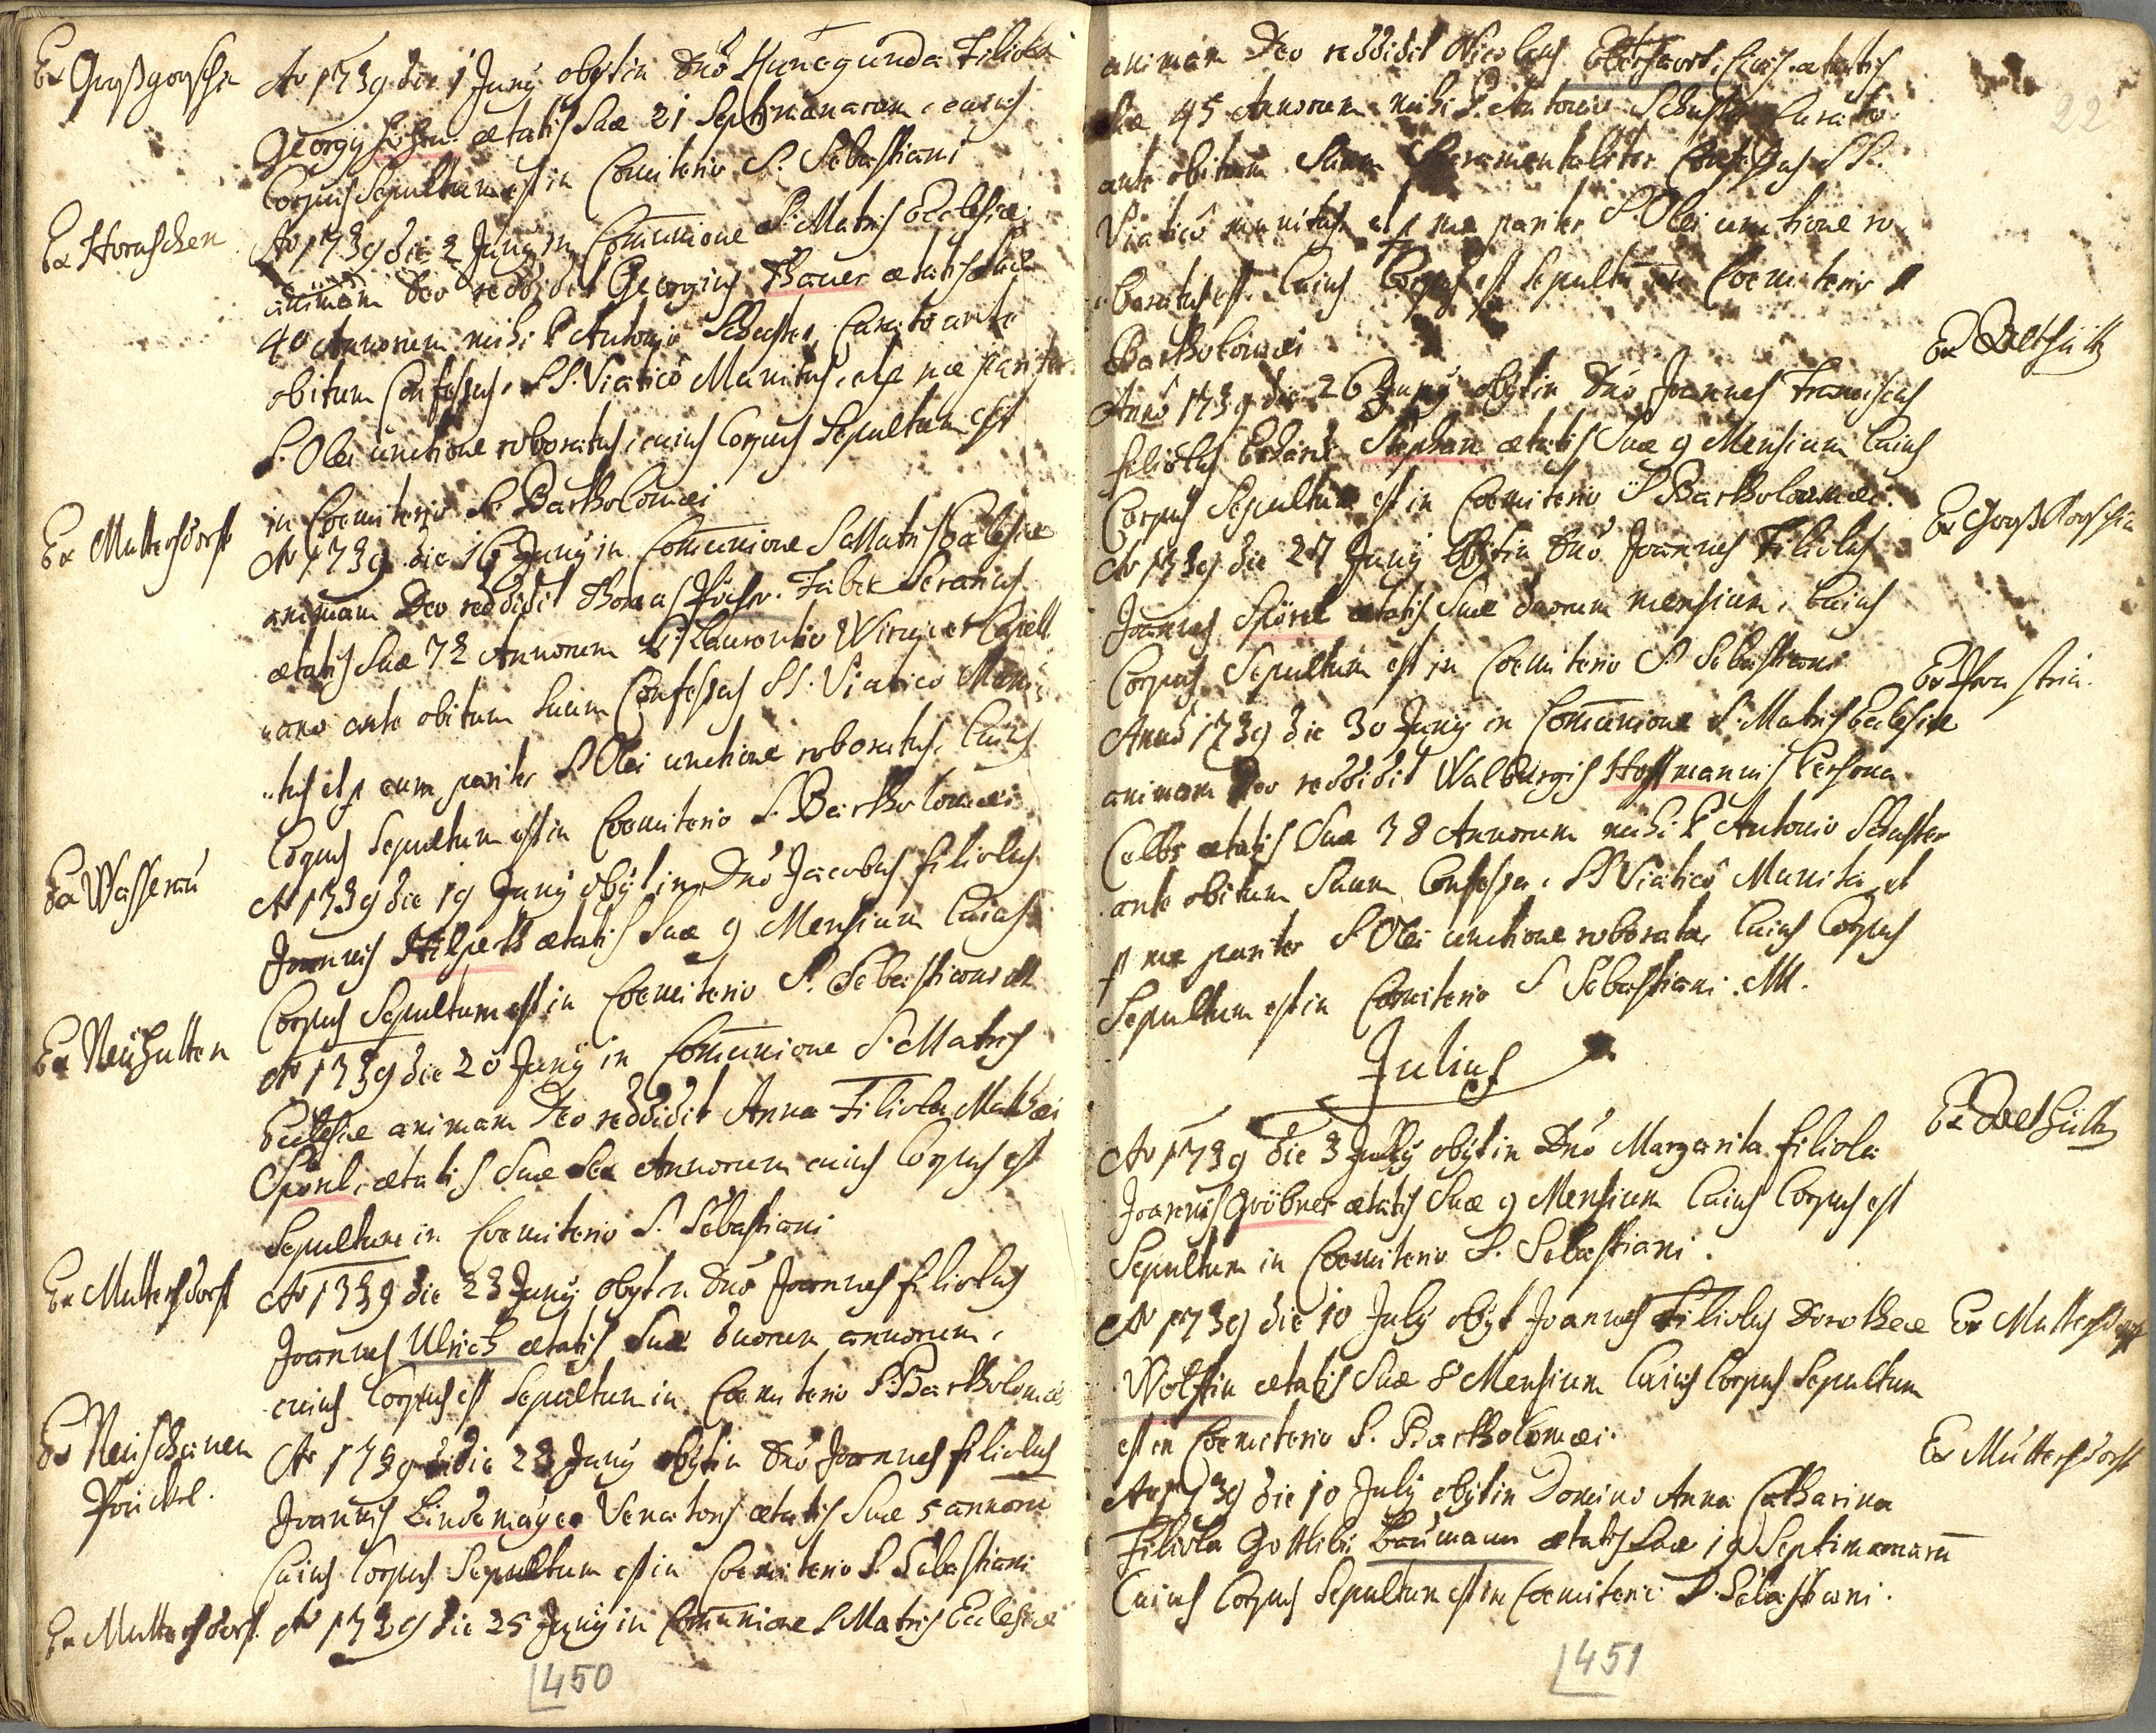 Ex Großgorschin
Ao 1739 die 1 Juny obyt in Dnō Kunegunda Filiola
Georgy aetatis Suae 21 Septimanarum, cuius
Corpus Sepultum est in Comiterio S. Sebastiani
Ex Horuschen
Ao 1739 die 2 Juny in Com̄unione S. Matris Ecclesiae
animam Deo reddidit Georgius Bauer aetatis suae
40 Annorum mihi P Antonio Schuster, Curato ante
obitum Confessus, SS. Viaticô Munitus, et p me pariter
S. Olei unctione roboratus, cuius Corpus Sepultum est
in Coemiterio S. Bartholomaei
Ex Muttersdorff
Ao 1739 die 16 Juny in Com̄unione S Matris Ecclesiae
animam Deo reddidit Thomas Faber Serarius
aetatis Suae 72 Annorum P. Laurentio Capell
"ano ante obitum Suum Confessus SS. Viatico Muni
"tus et p eum pariter S Olei unctione roboratus, Cuius
Corpus Sepultum est in Coemiterio S. Bartholomaei
Ex Wasserau
Ao 1739 die 19 Juny obyt in Dnō Jacobus filiolus
Joannis Hilpert aetatis Suae 9 Mensium Cuius
Corpus Sepultum est in Coemiterio S. Sebastiani M
Ex Neuhütten
Ao 1739 die 20 Juny in Com̄unione S. Matris
Ecclesiae animam Deo reddidit Anna Filiola Mathaei
Spönl, aetatis Suae Annorum cuius Corpus est
Sepultum in Coemiterio S. Sebastiani
Ex Muttersdorff
Ao 1739 die 23 Juny obyt in Dnō Joannes filiolus
Joannes Ulrich aetatis Suae duorum annorum,
cuius Corpus est Sepultum in Coemiterio S. Bartholomaei
Ex Neuschönen
Prückel.
Ao 1739 die 23 Juny obyt in Dnō Joannes filiolus
Joannis Lindemayer Venatoris aetatis Suae 5 annoru
Cuius Corpus Sepultum est in Coemiterio S. Sebastiani
Ex Muttersdorff.
Ao 1739 die 25 Juny in Com̄unione S Matris Ecclesiae
450
22
animam Deo reddidit Nicolaus aetatis
suae 45 Annorum mihi P. Antonio Schuster Curato
ante obitum Suum Sacramentaliter Confessus SS.
Viaticô munitus et p me pariter S. Olei unctione ro
"boratus est. Cuius Corpus est Sepultum in Coemiterio S
Bartholomaei
Ex Waldhütt
Annô 1739 die 26 Juny obyt in Dnō Joannes Franciscus
filiolus Stephan aetatis Suae 9 Mensium Cuius
Corpus Sepultum est in Coemiterio S Bartholomaei
Ex Großgorschin
Ao 1739 die 27 Juny obyt in Dnō Joannes Filiolus
Joannes Spörel aetatis Suae duorum mensium, Cuius
Corpus Sepultum est in Coemiterio S Sebastiani
Annô 1739 die 30 Juny in Com̄unione S. Matris Ecclesiae
animam Deo reddidit Walburgis Hoffmannis Persona
Caelebs aetatis Suae 38 Annorum mihi P Antonio Schuster
ante obitum Suum Confessa, SS Viaticô Munita et
p me pariter S Olei unctione roborata, Cuius Corpus
Sepultum est in Coemiterio S Sebastiani M.
Julius
Ex Waldhütt
Ao 1739 die 3 July obyt in Dnō Margarita filiola
Joannis Gröbner aetatis Suae 9 Mensium Cuius Corpus est
Sepultum in Coemiterio S. Sebastiani.
Ao 1739 die 10 July obyt Joannes Filiolus Dorotheae
Ex Muttersdorff
Wolffin aetatis Suae 8 Mensium Cuius Corpus Sepultum
est in Coemiterio S. Bartholomaei.
Ex Muttersdorff
Ao 1739 die 10 July obyt in Domino Anna Catharina
Filiola Gottlibii Baumann aetatis Suae 19 Septimanarū
Cuius Corpus Sepultum est in Coemiterio S. Sebastiani.
451